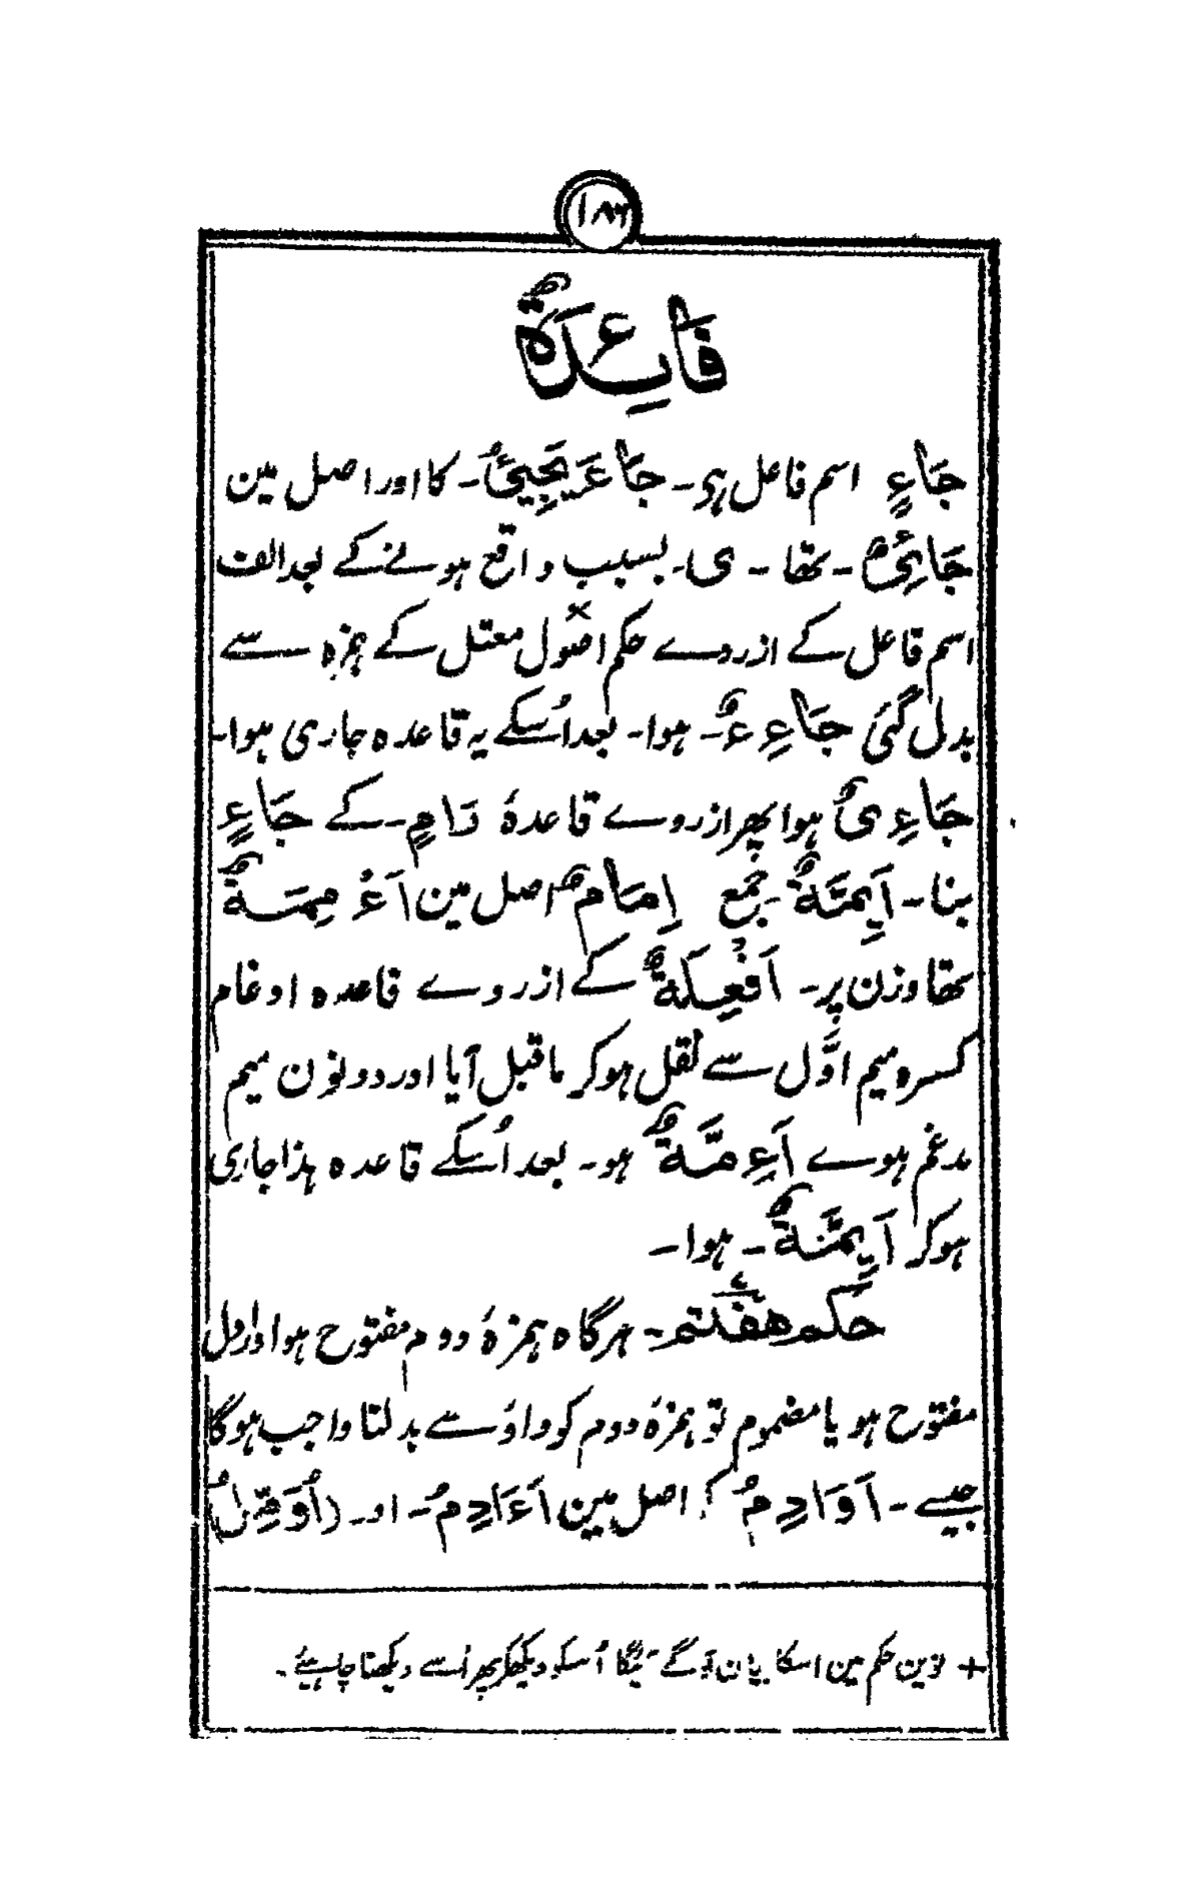 ۱۸۶
فَائِدَةٌ
جَاءٍ اسم فاعل ہی۔ جَاءَ یَجِیْئُ۔ کا اور اصل مین
جَایِئٌ۔ تھا۔ ی۔ بسبب واقع ہونے کے بعد الف
اسم فاعل کے ازروے حکم اصول معتل کے ہمزہ سے
بدل گئی جَاءِءٌ۔ ہوا۔ بعد اُسکے یہ قاعدہ جاری ہوا۔
جَاءِیٌ ہوا پھر ازروے قاعدۂ رَامٍ۔ کے جَاءٍ
بنا۔ اَیِمَّةٌ۔ جمع اِمَامٌ اصل مین اَءْمِمَةٌ
تھا وزن پر۔ اَفْعِلَةٌ کے ازروے قاعدہ ادغام
کسرہ میم اوّل سے نقل ہوکر ماقبل آیا اور دونون میم
مدغم ہوے اَءِمَّةٌ ہو۔ بعد اُسکے قاعدہ ہذا جاری
ہوکر اَیِمَّةٌ۔ ہوا۔
حکم ہفتم۔ ہرگاہ ہمزۂ دوم مفتوح ہو اور اول
مفتوح ہو یا مضموم تو ہمزۂ دوم کو واؤ سے بدلنا واجب ہوگا
جیسے۔ اَوَادِمُ کہ اصل مین اَءَادِمُ۔ اور (اُوَمِّلُ)
+ نوین حکم مین اسکا بیان آگے آئیگا اُسکو دیکھکر پھر اُسے دیکھنا چاہیئے۔